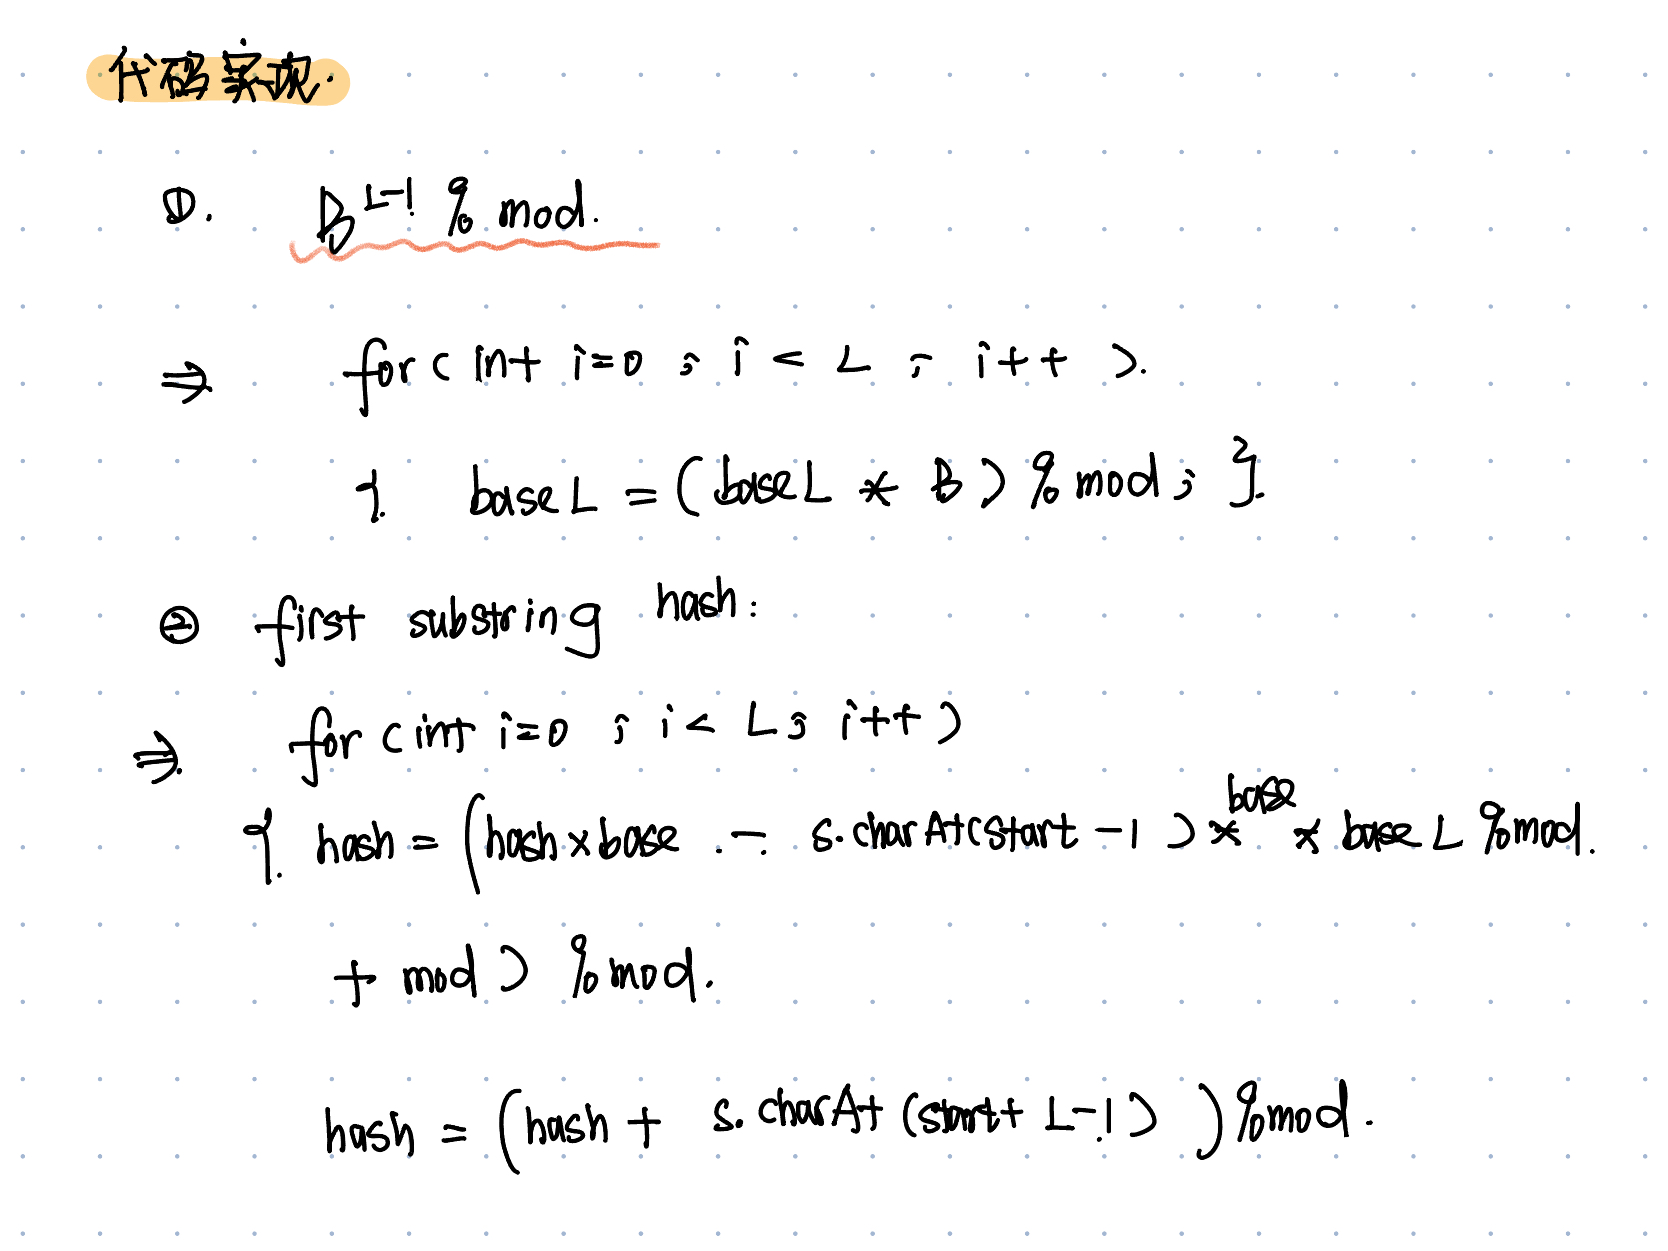 代码实现.
①. B^{L-1} % mod.
⇒ for ( int i=0 ; i < L ; i++ ).
{. baseL = (baseL * B) % mod ; }.
② first substring hash:
⇒ for ( int i=0 ; i < L ; i++ )
{. hash = (hash × base - s.charAt(start -1 ) * base * baseL % mod.
+ mod ) % mod.
hash = (hash + s.charAt (start + L-1) ) % mod.